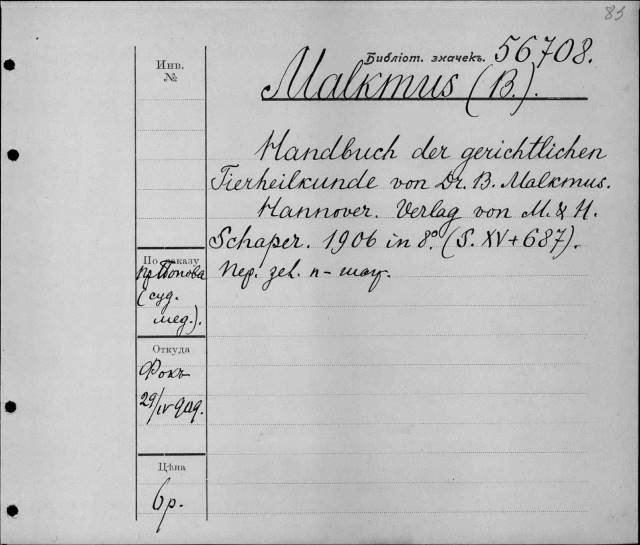 83
Библіот. значекъ. 56708.
Malkmus (B.).
Handbuch der gerichtlichen
Tierheilkunde von Dr. B. Malkmus.
Hannover. Verlag von M. & H.
Schaper. 1906 in 8°. (S. XV + 687).
Пер. зел. п-
Инв.
№
По заказу
Пр Попова
(суд.
мед.).
Откуда
Фокъ
29/IV 909.
Цѣна
6 р.